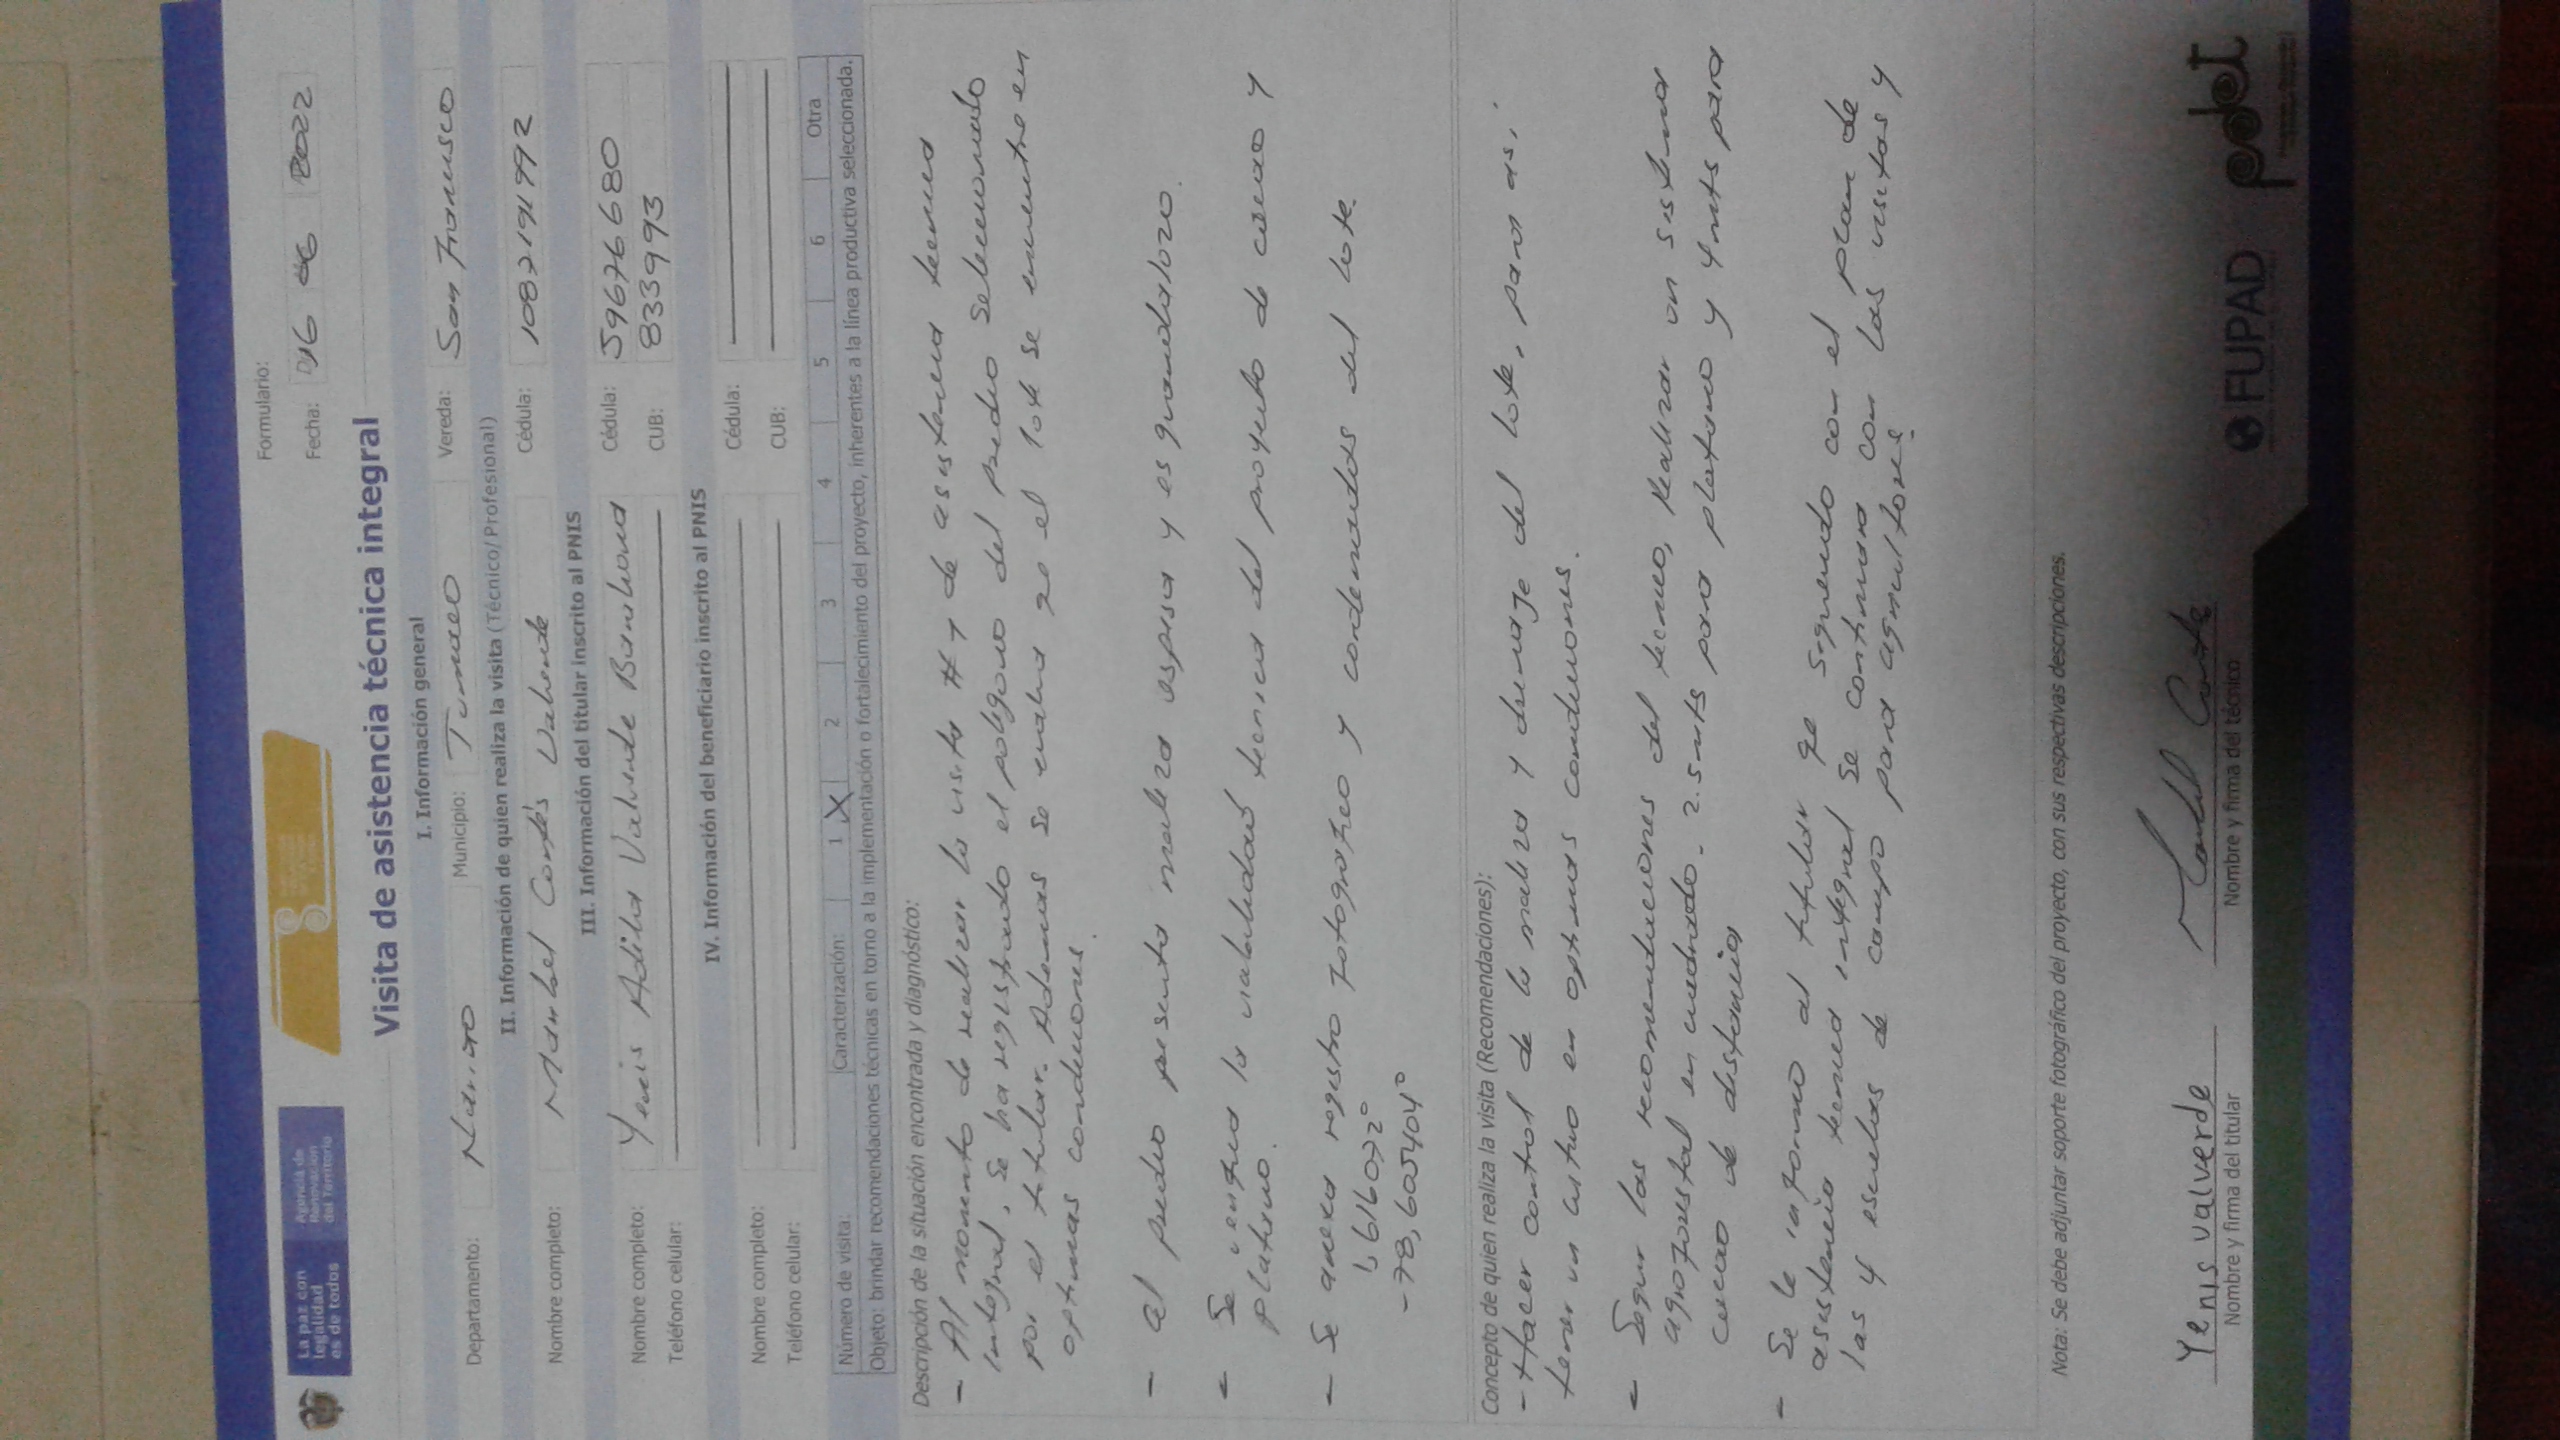 La paz con
legalidad
es de todos
Agencia de
Renovación
del Territorio
Formulario:
Fecha: 16 06 2022
Visita de asistencia técnica integral
I. Información general
Departamento: Nariño Municipio: Tumaco Vereda: San Francisco
II. Información de quien realiza la visita (Técnico/Profesional)
Nombre completo: Maribel Cortés Valverde Cédula: 1087191992
III. Información del titular inscrito al PNIS
Nombre completo: Yenis Adilia Valverde Cédula: 59676680
Teléfono celular: CUB: 833993
IV. Información del beneficiario inscrito al PNIS
Nombre completo: Cédula:
Teléfono celular: CUB:
Número de visita: Caracterización: 1 X 2 3 4 5 6 Otra
Objeto: brindar recomendaciones técnicas en torno a la implementación o fortalecimiento del proyecto, inherentes a la línea productiva seleccionada.
Descripción de la situación encontrada y diagnóstico:
- Al momento de realizar la visita # 1 de asistencia tecnica
integral, se ha registrado el poligono del predio seleccionado
por el titular. Ademas se evalua qe el lote se encuentre en
optimas condiciones.
- el predio presenta maleza espesa y es guandalozo.
- Se entrea la viabilidad tecnica del proyecto de cacao y
platano.
- Se anexa registro fotografico y cordenadas del lote.
1,616072°
-78,605404°
Concepto de quien realiza la visita (Recomendaciones):
- Hacer control de la maleza y drenaje del lote, para asi
tener un cultivo en optimas condiciones.
- Segun las recomendaciones del tecnico, Realizar un sistema
agroforestal en cuadrado. 2.5 mts para platano y 4 mts para
cacao de distancia
- Se le informo al titular qe siguiendo con el plan de
asistencia tecnica integral se continuara con las visitas y
las y escuelas de campo para agricultores.
Nota: Se debe adjuntar soporte fotográfico del proyecto, con sus respectivas descripciones.
Yenis valverde
Nombre y firma del titular
Maribel Cortés
Nombre y firma del técnico
FUPAD
pdet